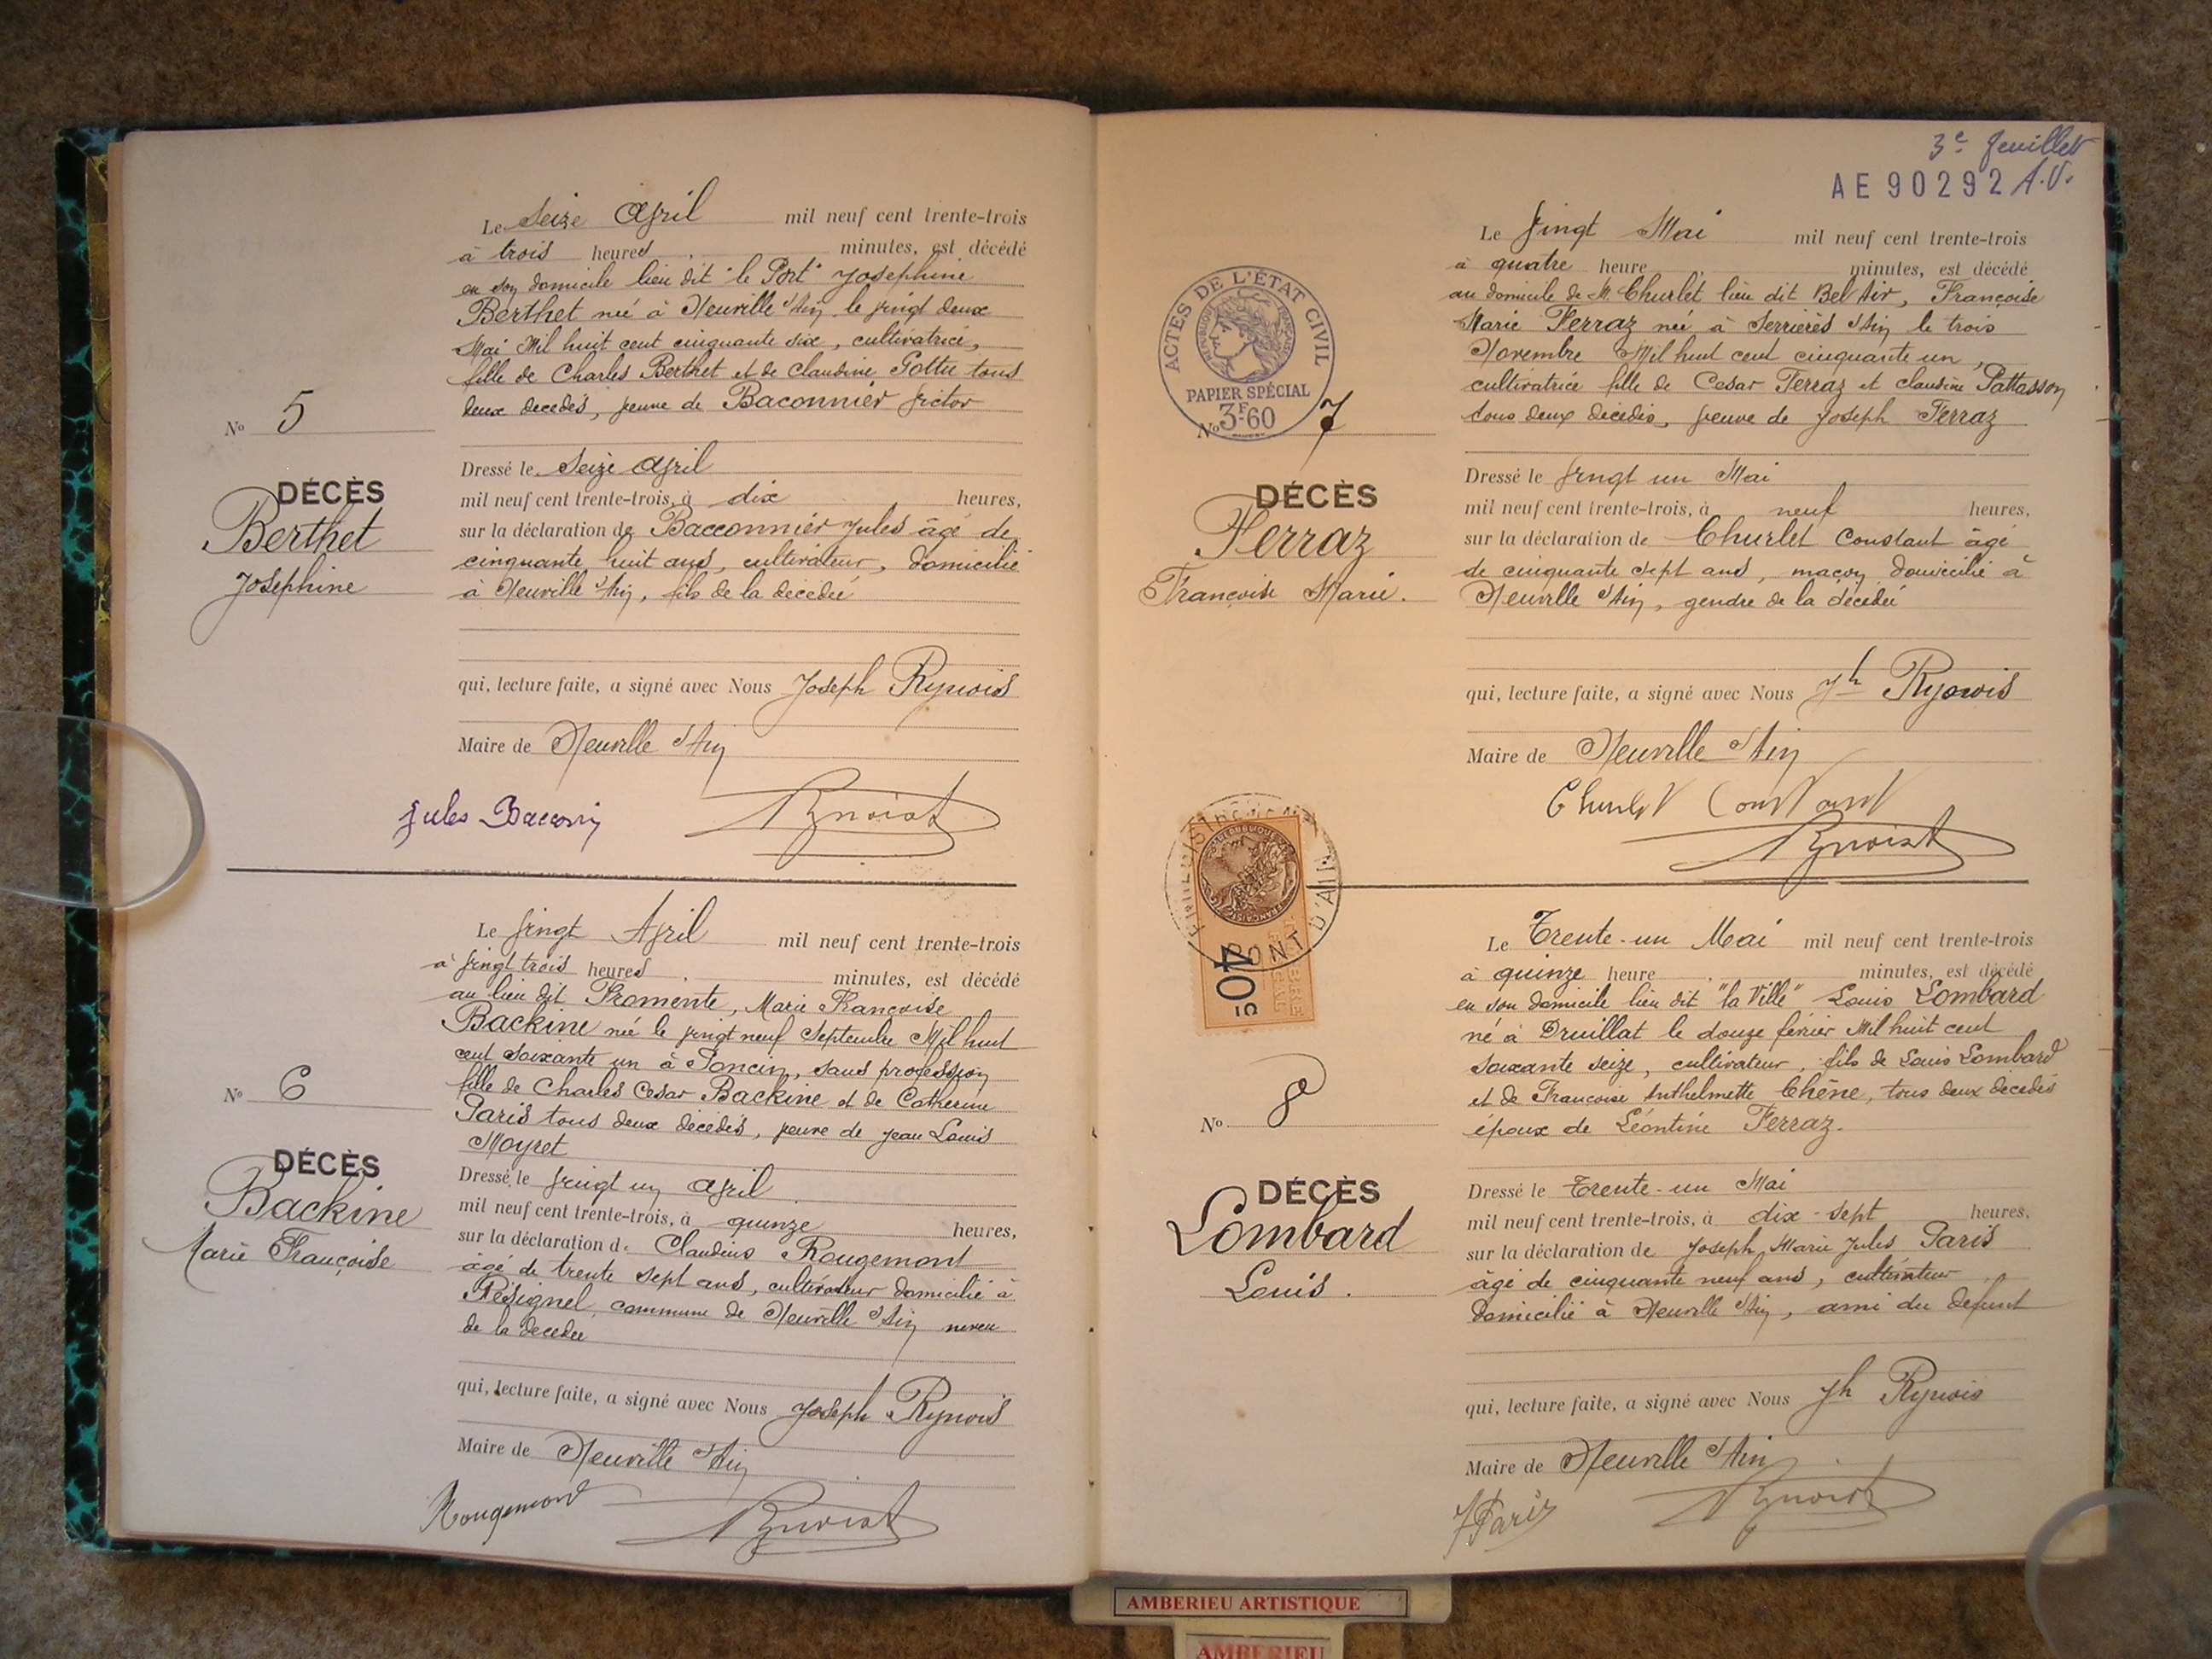 Le Seize Avril mil neuf cent trente-trois
à trois heures minutes, est décédé
en son domicile lieu dit "le Port" Josephine
Berthet née à Neuville s/Ain le vingt deux
Mai Mil huit cent cinquante six, cultivatrice,
fille de Charles Berthet et de Claudine Gottu tous
deux décédés, veuve de Baconnier Victor
No 5
DÉCÈS
Berthet
Josephine
Dressé le Seize Avril
mil neuf cent trente-trois, à dix heures,
sur la déclaration de Bacconnier Jules âgé de
cinquante huit ans, cultivateur, domicilié
à Neuville s/Ain, fils de la décédée
qui, lecture faite, a signé avec Nous Joseph Rynois
Maire de Neuville s/Ain
Jules Baconni
Le vingt Avril mil neuf cent trente-trois
à vingt trois heures minutes, est décédé
au lieu dit Fromente, Marie Françoise
Backine née le vingt neuf Septembre Mil huit
cent soixante un à Poncin, sans profession
fille de Charles Cesar Backine et de Catherine
Paris tous deux décédés, veuve de Jean Louis
Moyret
No 6
DÉCÈS
Backine
Marie Françoise
Dressé le vingt un Avril
mil neuf cent trente-trois, à quinze heures,
sur la déclaration de Claudius Rougemont
âgé de trente sept ans, cultivateur domicilié à
Résignel, commune de Neuville s/Ain neveu
de la décédée
qui, lecture faite, a signé avec Nous Joseph Rynois
Maire de Neuville s/Ain
Rougemond
3e feuillet
AE 90292 A.V.
Le Vingt Mai mil neuf cent trente-trois
à quatre heure minutes, est décédé
au domicile de M. Churlet lieu dit Bel Air, Françoise
Marie Ferraz née à Serrières s/Ain le trois
Novembre Mil huit cent cinquante un,
cultivatrice fille de Cesar Ferraz et Claudine Pattasson
tous deux décédés, veuve de Joseph Ferraz
ACTES DE L'ÉTAT CIVIL
RÉPUBLIQUE FRANÇAISE
PAPIER SPÉCIAL
3F-60
No 7
DÉCÈS
Ferraz
Françoise Marie.
Dressé le vingt un Mai
mil neuf cent trente-trois, à neuf heures,
sur la déclaration de Churlet Constant âgé
de cinquante sept ans, maçon domicilié à
Neuville s/Ain, gendre de la décédée
qui, lecture faite, a signé avec Nous Jh Rynois
Maire de Neuville s/Ain
Churlet Constant
PONT D'AIN
40c
Le Trente-un Mai mil neuf cent trente-trois
à quinze heure minutes, est décédé
en son domicile lieu dit "la Ville" Louis Lombard
né à Druillat le douze février Mil huit cent
soixante seize, cultivateur, fils de Louis Lombard
et de Francoise Anthelmette Chêne, tous deux décédés
époux de Léontine Ferraz.
No 8
DÉCÈS
Lombard
Louis.
Dressé le Trente-un Mai
mil neuf cent trente-trois, à dix-sept heures,
sur la déclaration de Joseph Marie Jules Paris
âgé de cinquante neuf ans, cultivateur
domicilié à Neuville s/Ain, ami du défunt
qui, lecture faite, a signé avec Nous Jh Rynois
Maire de Neuville s/Ain
J Paris
AMBERIEU ARTISTIQUE
AMBERIEU